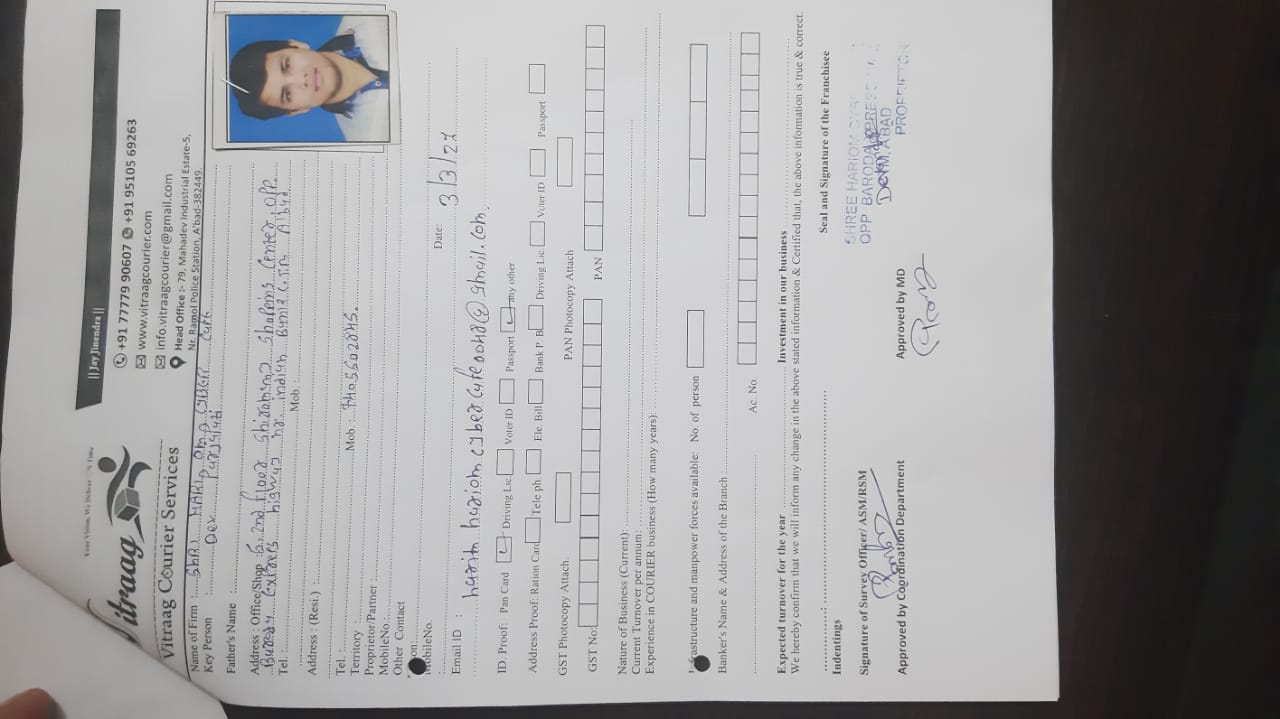 || Jay Jinendra ||
Your Vision, We Deliver On Time
Vitraag
Vitraag Courier Services
+91 77779 90607 +91 95105 69263
www.vitraagcourier.com
info.vitraagcourier@gmail.com
Head Office :- 79, Mahadev Industrial Estate-5,
Nr. Ramol Police Station, A'bad-382449.
Name of Firm : SHRI HARI OM CYBER Cafe
Key Person : Dev Prajapati
Father's Name :
Address : Office/Shop : 2nd Floor Shiromani Shopping Center, OPP.
Baroda Express highway
Tel. : Mob. :
Address : (Resi.) :
Tel. : Mob. 7405602845.
Territory :
Proprietor/Partner :
MobileNo.:
Other Contact
MobileNo. Date: 3/3/22
Email ID :
ID. Proof: Pan Card Driving Lic. Voter ID Passport Any other
Address Proof: Ration Card Tele ph. Ele. Bill Bank P. B. Driving Lic Voter ID Passport
GST Photocopy Attach. PAN Photocopy Attach
GST No: PAN
Nature of Business (Current):
Current Turnover per annum:
Experience in COURIER business (How many years):
Infrastructure and manpower forces available: No. of person
Banker's Name & Address of the Branch :
Ac. No.
Expected turnover for the year Investment in our business
We hereby confirm that we will inform any change in the above stated information & Certified that, the above information is true & correct.
Indentings Seal and Signature of the Franchisee
Signature of Survey Officer/ ASM/RSM
SHREE HARIOM CYBER
OPP BARODA EXPRESS
AHMEDABAD
PROPRIETOR
Approved by Coordination Department Approved by MD